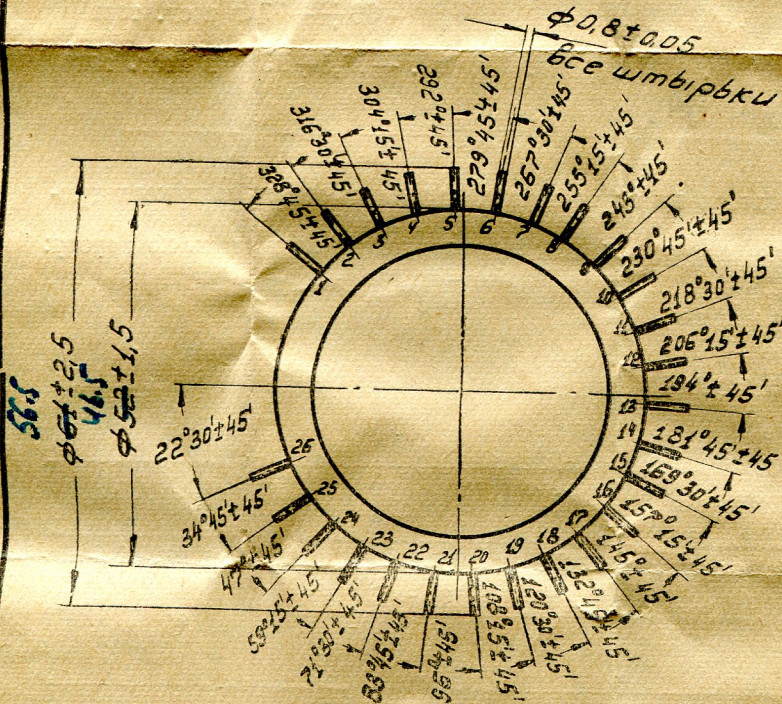 ϕ0,8±0,05
все штырьки
328°45'±45'
316°30'±45'
304°15'±45'
292°±45'
279°45'±45'
267°30'±45'
255°15'±45'
243°±45'
230°45'±45'
218°30'±45'
206°15'±45'
194°±45'
181°45'±45
169°30'±45'
157°15'±45'
145°±45'
132°45'±45'
120°30'±45'
108°15'±45'
96°±45'
83°45'±45'
71°30'±45'
59°15'±45'
47°±45'
34°45'±45'
22°30'±45'
1
2
3
4
5
6
7
8
9
10
11
12
13
14
15
16
17
18
19
20
21
22
23
24
25
26
56.5
ϕ61±2,5
46.5
ϕ52±1,5